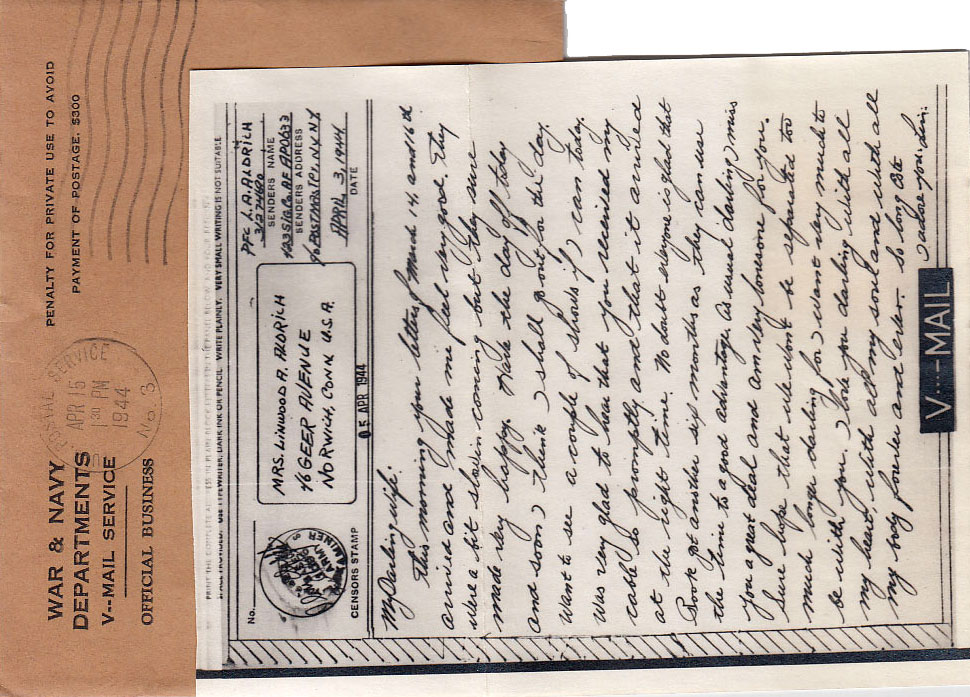 WAR & NAVY
DEPARTMENTS
V--MAIL SERVICE
OFFICIAL BUSINESS
PENALTY FOR PRIVATE USE TO AVOID
PAYMENT OF POSTAGE, $300
POSTAL SERVICE
APR 15
1 30 PM
1944
No. 3
VERY SMALL WRITING IS NOT SUITABLE.
No.
CENSORS STAMP
MRS. LINWOOD A. ALDRICH
46 GEER AVENUE
NORWICH, CONN U.S.A.
05 APR 1944
PFC L. A. ALDRICH
31274690
SENDERS NAME
SENDERS ADDRESS
℅ POSTMASTER, N.Y. N.Y
APRIL 3, 1944
DATE
My Darling wife:
This morning you letters of March 14, and 16th
arrived and made me feel very good. They
were a bit slow in coming but they sure
made very happy. Have the day off today
and soon I think I shall go out for the day.
Want to see a couple of shows if I can today.
Was very glad to hear that you received my
cable so promptly, and that it arrived
at the right time. No doubt everyone is glad that
Book got another six months as they can use
the time to a good advantage. As usual darling I miss
you a great deal and am very lonesome for you.
Sure hope that we won't be separated too
much longer darling for I want very much to
be with you. I love you darling with all
my heart, with all my soul and with all
my body forever and ever. So long
I adore you, Lin.
V---MAIL